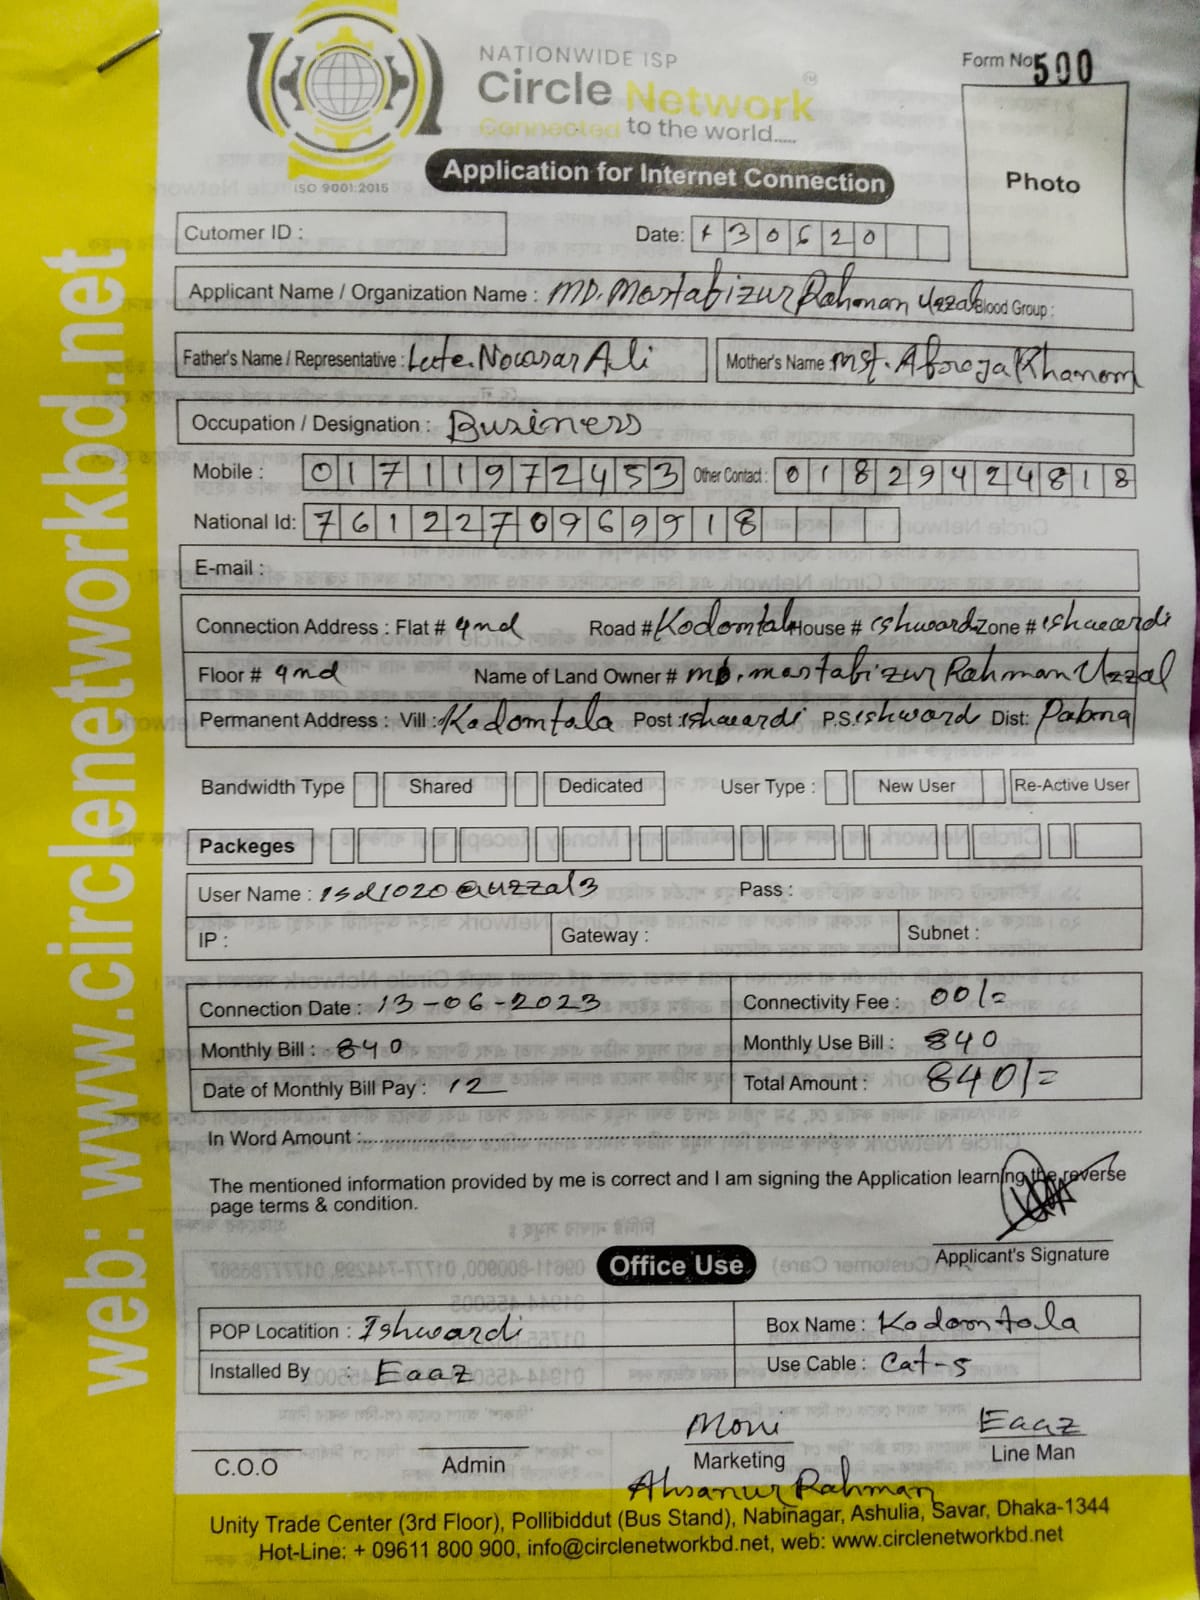 NATIONWIDE ISP
Circle Network
Connected to the world.....
ISO 9001:2015
Form No 500
Photo
Application for Internet Connection
Cutomer ID :
Date: 1 3 0 6 2 0
Applicant Name / Organization Name : MD. Mostafizur Rahman Uzzal Blood Group :
Father's Name / Representative : Late. Nowsar Ali Mother's Name : Mst. Afroja Khanom
Occupation / Designation : Business
Mobile : 01711972453 Other Contact : 01829424818
National Id: 7612270969918
E-mail :
Connection Address : Flat # 4nd Road # Kodomtala House # Ishwardi Zone # Ishwardi
Floor # 4nd Name of Land Owner # MD. Mostafizur Rahman Uzzal
Permanent Address : Vill : Kodomtala Post : Ishwardi P.S. Ishward Dist: Pabna
Bandwidth Type Shared Dedicated User Type : New User Re-Active User
Packeges
User Name : isd1020@uzzal3 Pass :
IP : Gateway : Subnet :
Connection Date : 13-06-2023 Connectivity Fee : 00/=
Monthly Bill : 840 Monthly Use Bill : 840
Date of Monthly Bill Pay : 12 Total Amount : 840/=
In Word Amount :
The mentioned information provided by me is correct and I am signing the Application learning the reverse
page terms & condition.
Applicant's Signature
Office Use
POP Locatition : Ishwardi Box Name : Kodomtala
Installed By : Eaaz Use Cable : Cat-5
Moni Eaaz
C.O.O Admin Marketing Line Man
Ahsanur Rahman
Unity Trade Center (3rd Floor), Pollibiddut (Bus Stand), Nabinagar, Ashulia, Savar, Dhaka-1344
Hot-Line: + 09611 800 900, info@circlenetworkbd.net, web: www.circlenetworkbd.net
web: www.circlenetworkbd.net